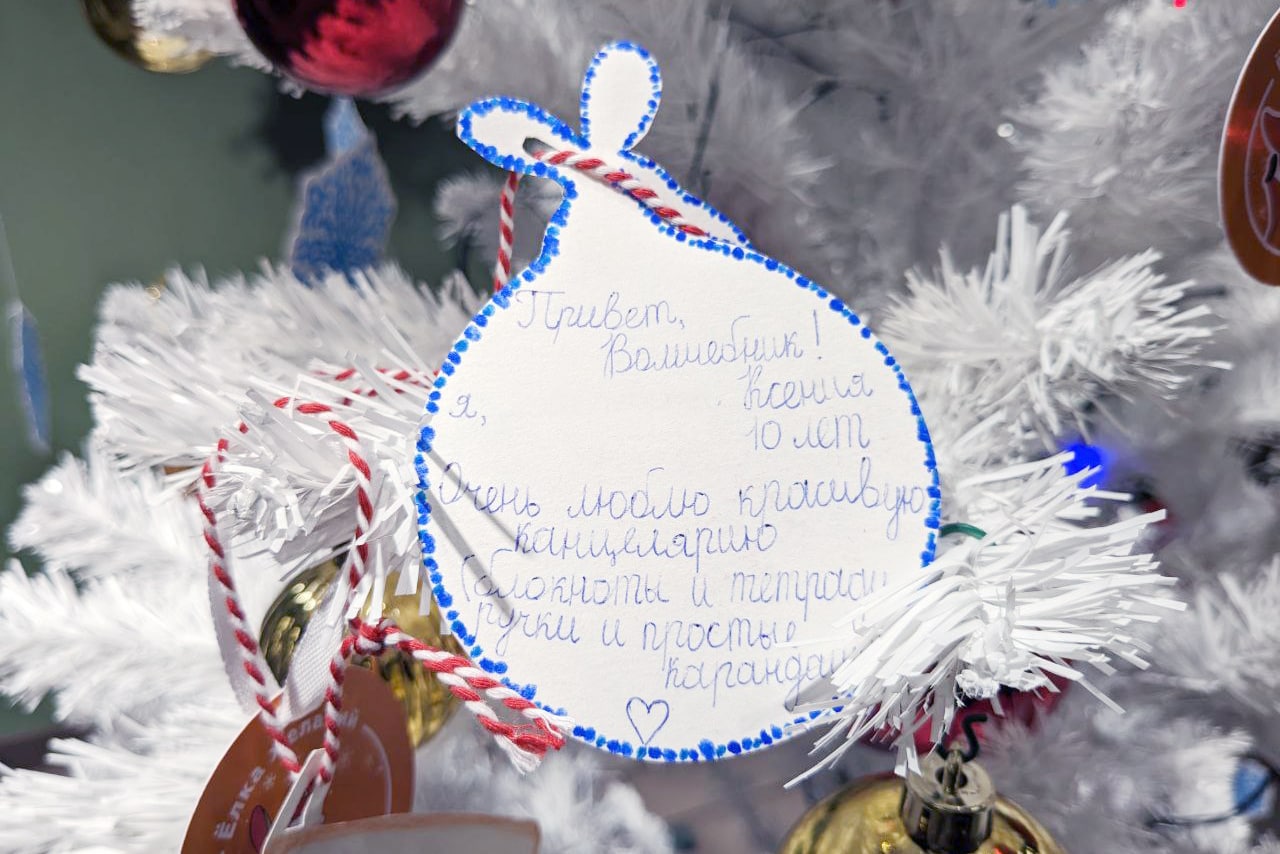 Привет,
Волшебник!
Я, Ксения
10 лет
Очень люблю красивую
канцелярию
(блокноты и тетради
ручки и простые
Ёлка